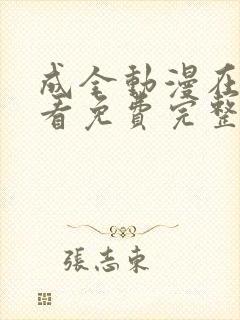 成全動漫在
看免費完整
張志東